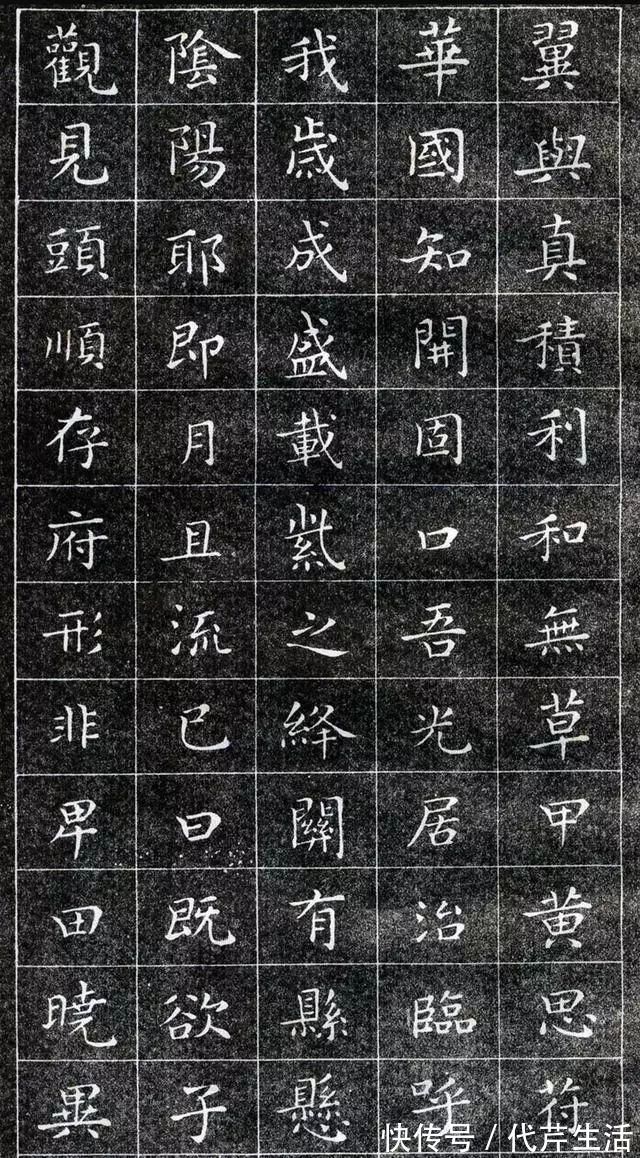 翼與真積利和無草甲黄思苻
華國知開固口吾光居治臨呼
我歲成盛載紫之絳關有縣懸
陰陽耶即月且流已曰既欲子
觀見頭順存府形非卑田曉異
快传号/代芹生活